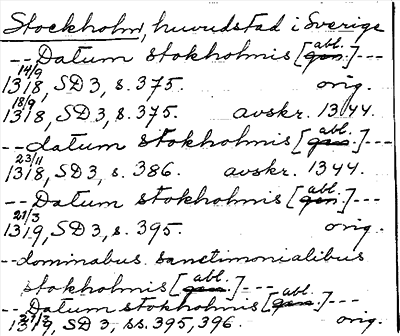 Stockholm, huvudstad i Sverige
--Datum stokholmis [gen. abl.]---
1318 14/9, SD 3, s. 375. orig.
1318 18/9, SD 3, s. 375. avskr. 1344.
--datum stokholmis [gen. abl.]---
1318 23/11, SD 3, s. 386. avskr. 1344.
--Datum stokholmis [gen. abl.]---
1319 21/3, SD 3, s. 395. orig.
--dominabus sanctimonialibus
stokholmis [gen. abl.]---
--Datum stokholmis [gen. abl.]---
1319 21/3, SD 3, ss. 395, 396. orig.